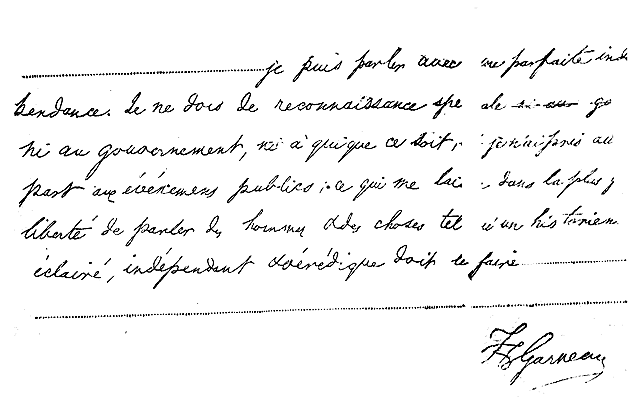 je puis parler avec une parfaite indé
pendance. Je ne dois de reconnaissance spé ale ni au go
ni au gouvernement, ni à quique ce soit, je n'ai pris au
part aux événemens publics; ce qui me lai dans la plus g
liberté de parler des hommes & des choses tel qu'un historien
éclairé, indépendant & véridique doit le faire
FX Garneau